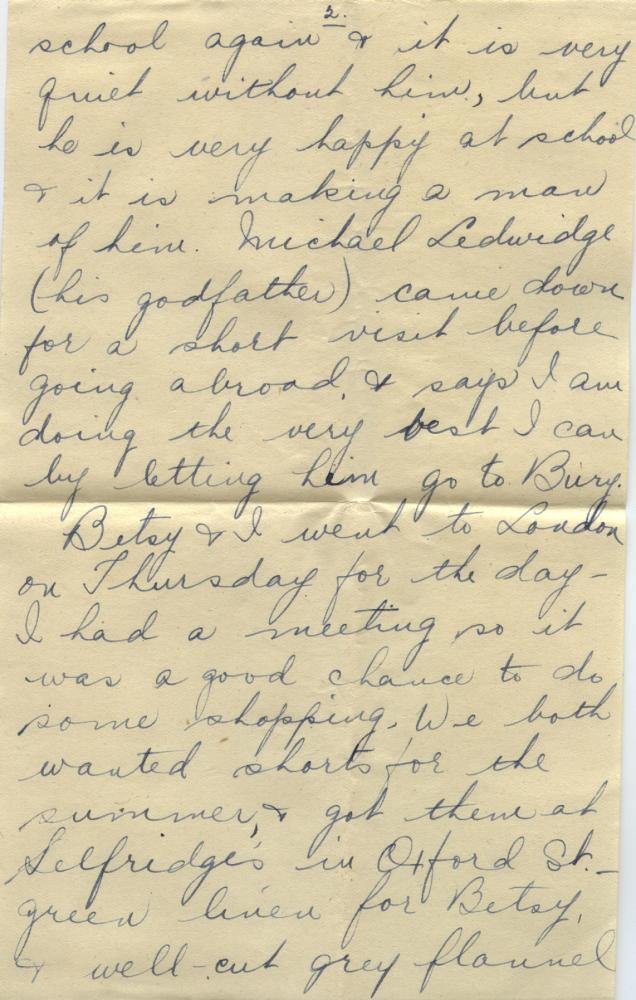 2.
school again & it is very
quiet without him, but
he is very happy at school
& it is making a man
of him. Michael Ledwidge
(his godfather) came down
for a short visit before
going abroad, & says I am
doing the very best I can
by letting him go to Bury.
Betsy & I went to London
on Thursday for the day -
I had a meeting, so it
was a good chance to do
some shopping. We both
wanted shorts for the
summer, & got them at
Selfridge's in Oxford St. -
green linen for Betsy,
& well-cut grey flannel